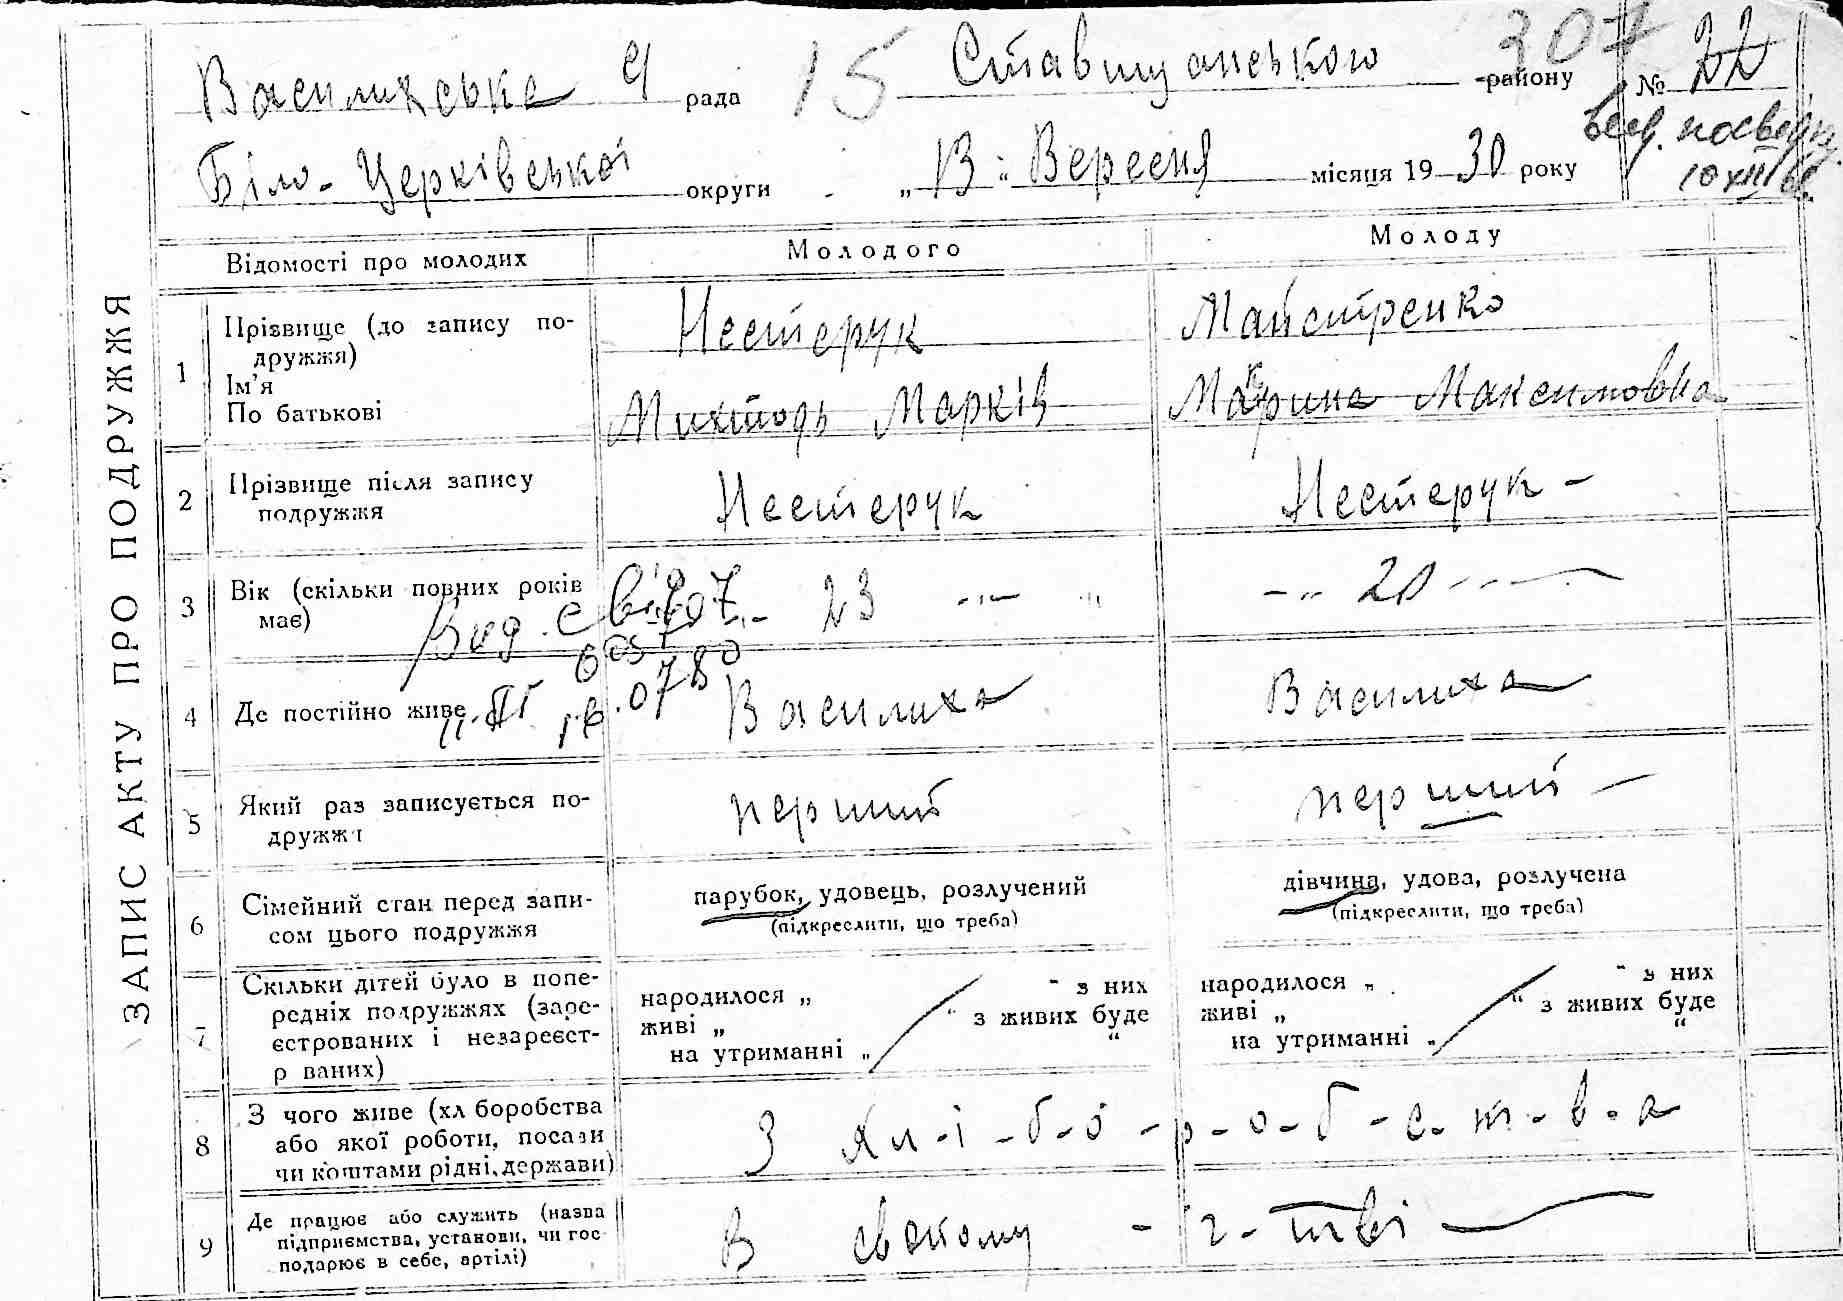 ЗАПИС АКТУ ПРО ПОДРУЖЖЯ
307
Василиська с/ рада 15 Ставищанського району № 22
Біло-Церківської округи „ 13 " Вересня місяця 1930 року
вид. посвідч.
10 XIII
Відомості про молодих Молодого Молоду
1 Прізвище (до запису подружжя) Нестерук Майстренко
Ім'я
По батькові Михтодь Марків Марина Максимовна
2 Прізвище після запису подружжя Нестерук Нестерук –
3 Вік (скільки повних років має) 23 20
Вид. свід
4 Де постійно живе Василиха Василиха
5 Який раз записується подружжя перший перший –
6 Сімейний стан перед записом цього подружжя парубок, удовець, розлучений дівчина, удова, розлучена
(підкреслити, що треба) (підкреслити, що треба)
7 Скільки дітей було в попередніх подружжях (зареєстрованих і незареєстр ваних)
народилося „ " з них народилося „ " з них
живі „ " з живих буде живі „ " з живих буде
на утриманні „ " на утриманні „ "
8 З чого живе (хл боробства або якої роботи, посади чи коштами рідні, держави) З хл-і-б-о-р-о-б-с-т-в-а
9 Де працює або служить (назва підприємства, установи, чи господарює в себе, артілі) В свойому - г-тві